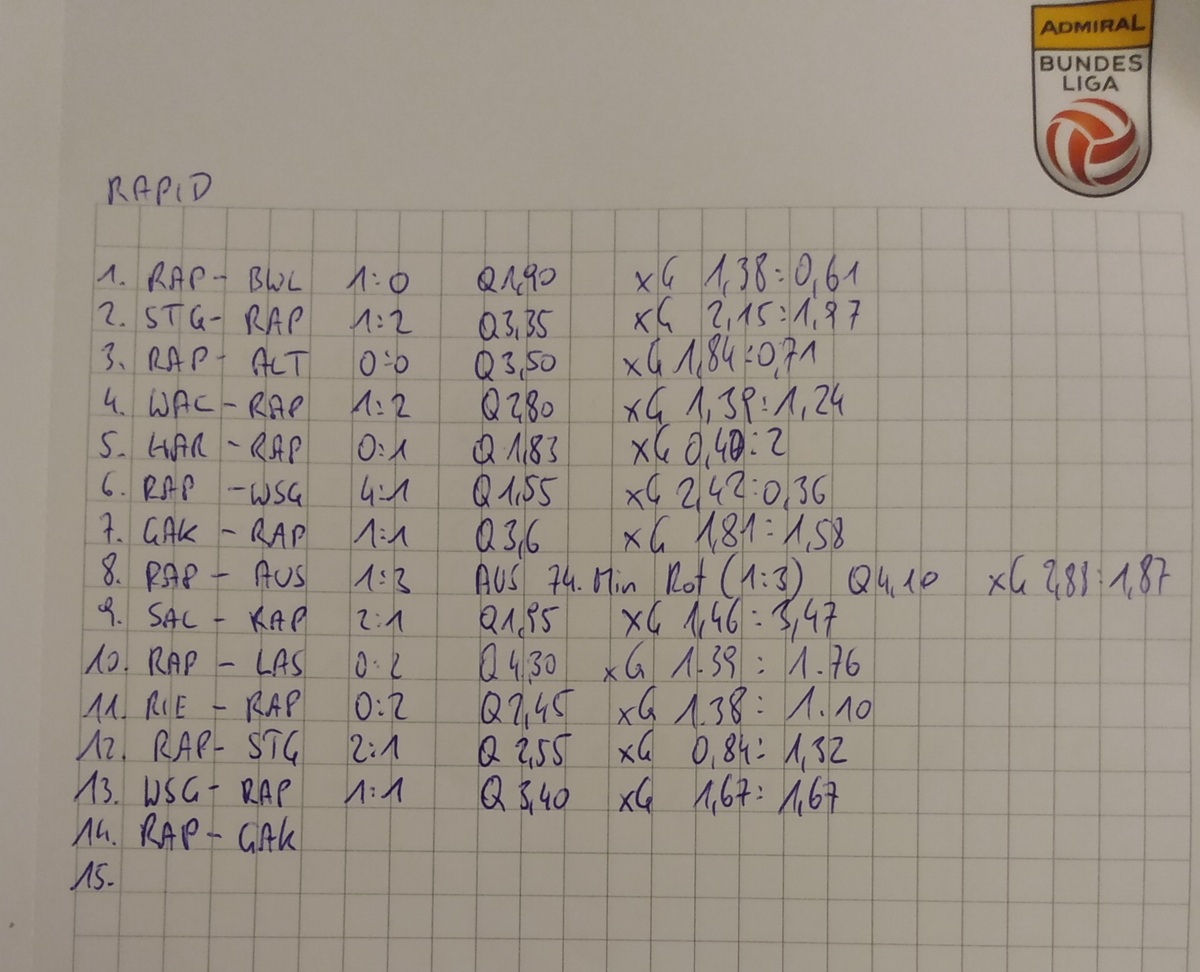 ADMIRAL
BUNDES
LIGA
RAPID
1. RAP - BWL 1:0 Q1,90 xG 1,38:0,61
2. STG- RAP 1:2 Q3,35 xG 2,15:1,97
3. RAP- ALT 0:0 Q3,50 xG 1,84:0,71
4. WAC - RAP 1:2 Q2,80 xG 1,39:1,24
5. HAR - RAP 0:1 Q1,83 xG 0,40:2
6. RAP - WSG 4:1 Q1,55 xG 2,42:0,36
7. GAK - RAP 1:1 Q3,6 xG 1,81:1,58
8. RAP - AUS 1:3 AUS 74. Min Rot (1:3) Q4,10 xG 2,83:1,87
9. SAL - RAP 2:1 Q1,95 xG 1,46:3,47
10. RAP - LAS 0:2 Q4,30 xG 1.39 : 1.76
11. RIE - RAP 0:2 Q2,45 xG 1.38 : 1.10
12. RAP- STG 2:1 Q 2,55 xG 0,84: 1,32
13. WSG- RAP 1:1 Q 3,40 xG 1,67: 1,67
14. RAP - GAK
15.